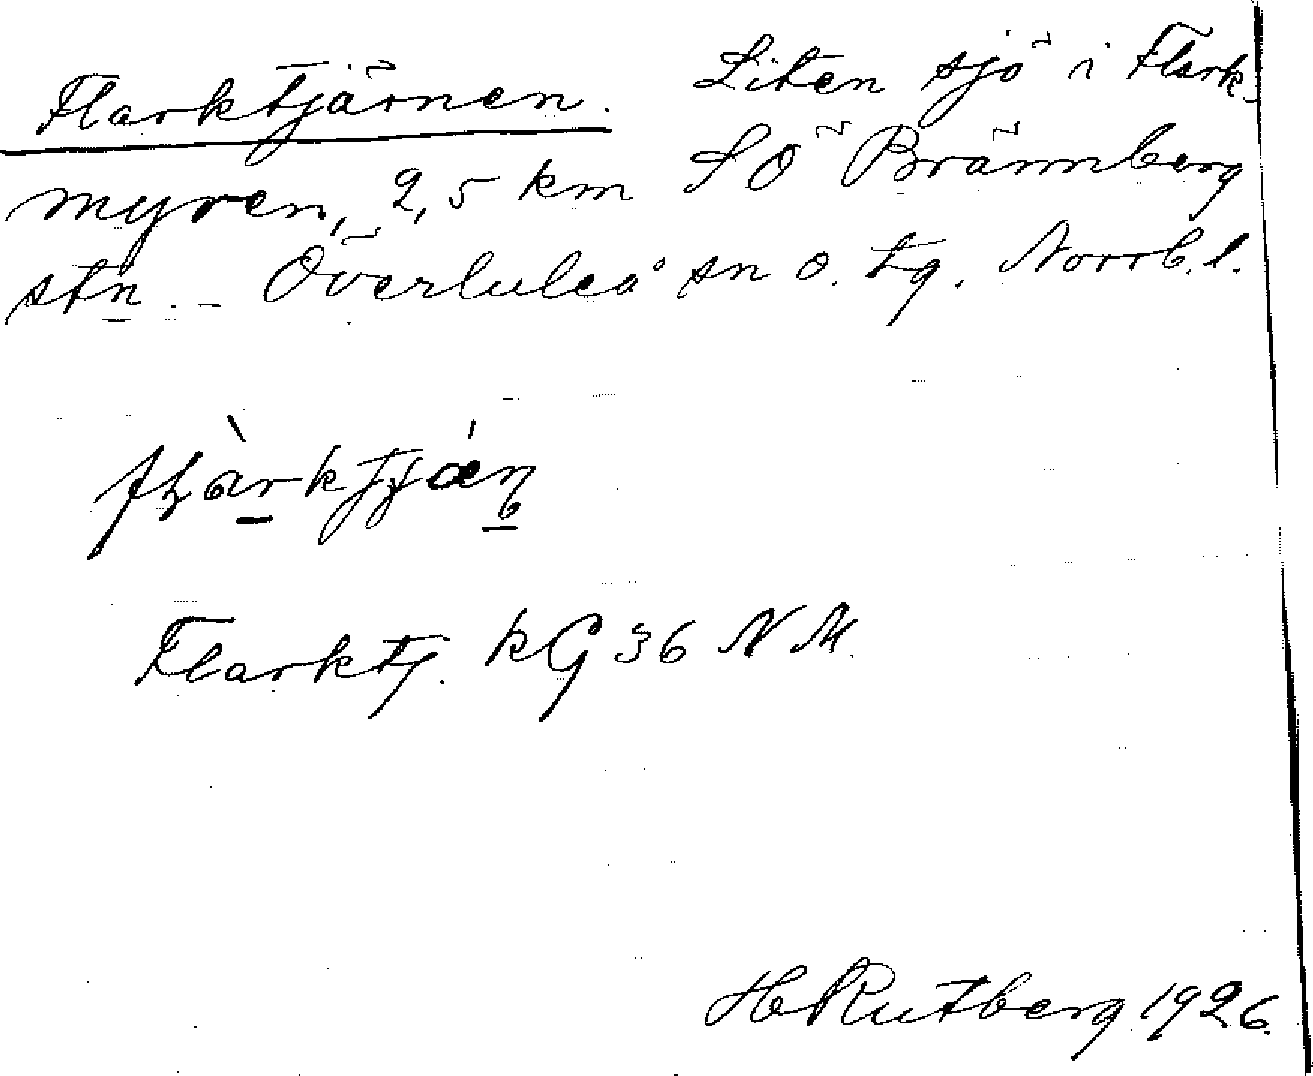 Flarktjärnen. Liten sjö i Flark-
myren, 2,5 km SÖ Brännberg
stn. - Överluleå sn o. tg. Norrb. l.
Flarktj. KG 36 NM.
H Rutberg 1926.